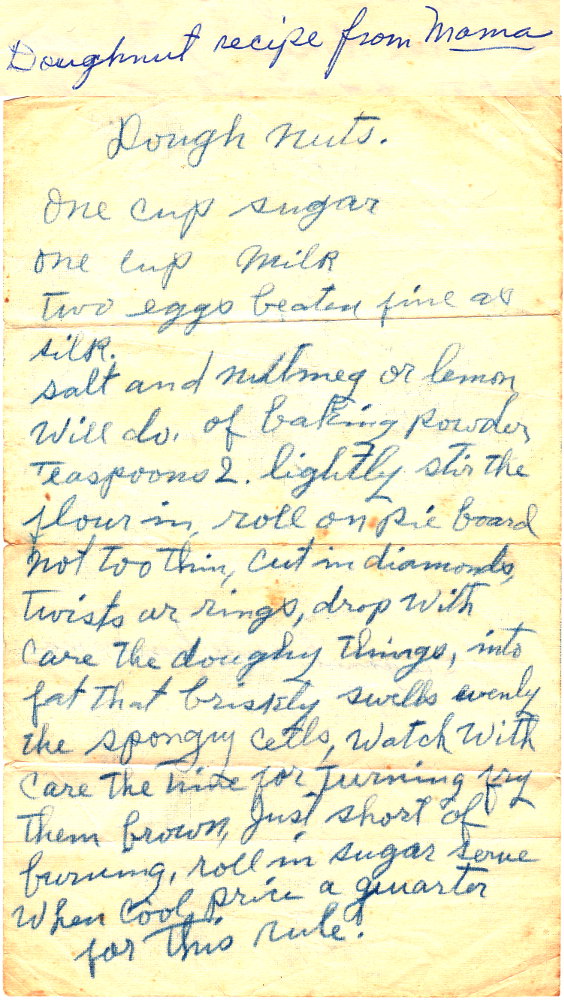 Doughnut recipe from Mama
Dough nuts.
One cup sugar
one cup milk
Two eggs beaten fine as
silk.
salt and nuttmeg or lemon
Will do. of baking powder
Teaspoons 2. lightly stir the
flour in, roll on pie board
not too thin, cut in diamonds,
twists or rings, drop with
care the doughy things, into
fat that briskly swells evenly
the spongy cells, Watch With
care the time for turning fry
them brown, just short of
burning, roll in sugar serve
When cool, price a quarter
for this rule!